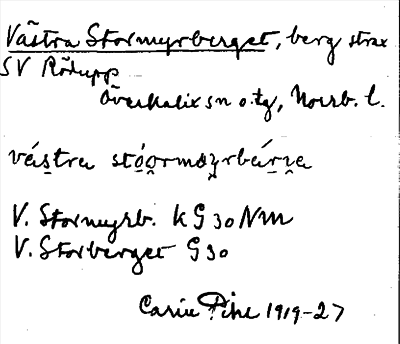 Västra Stormyrberget, berg strax
SV Rödupp
Överkalix sn o. tg, Norrb. l.
vás̱tra stó̱o̯rmœyrbárı̯a
V. Stormyrb. k G 30 NM
V. Storberget G 30
Carin Pihl 1919-27